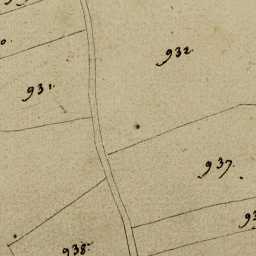 932.
931.
937.
938.